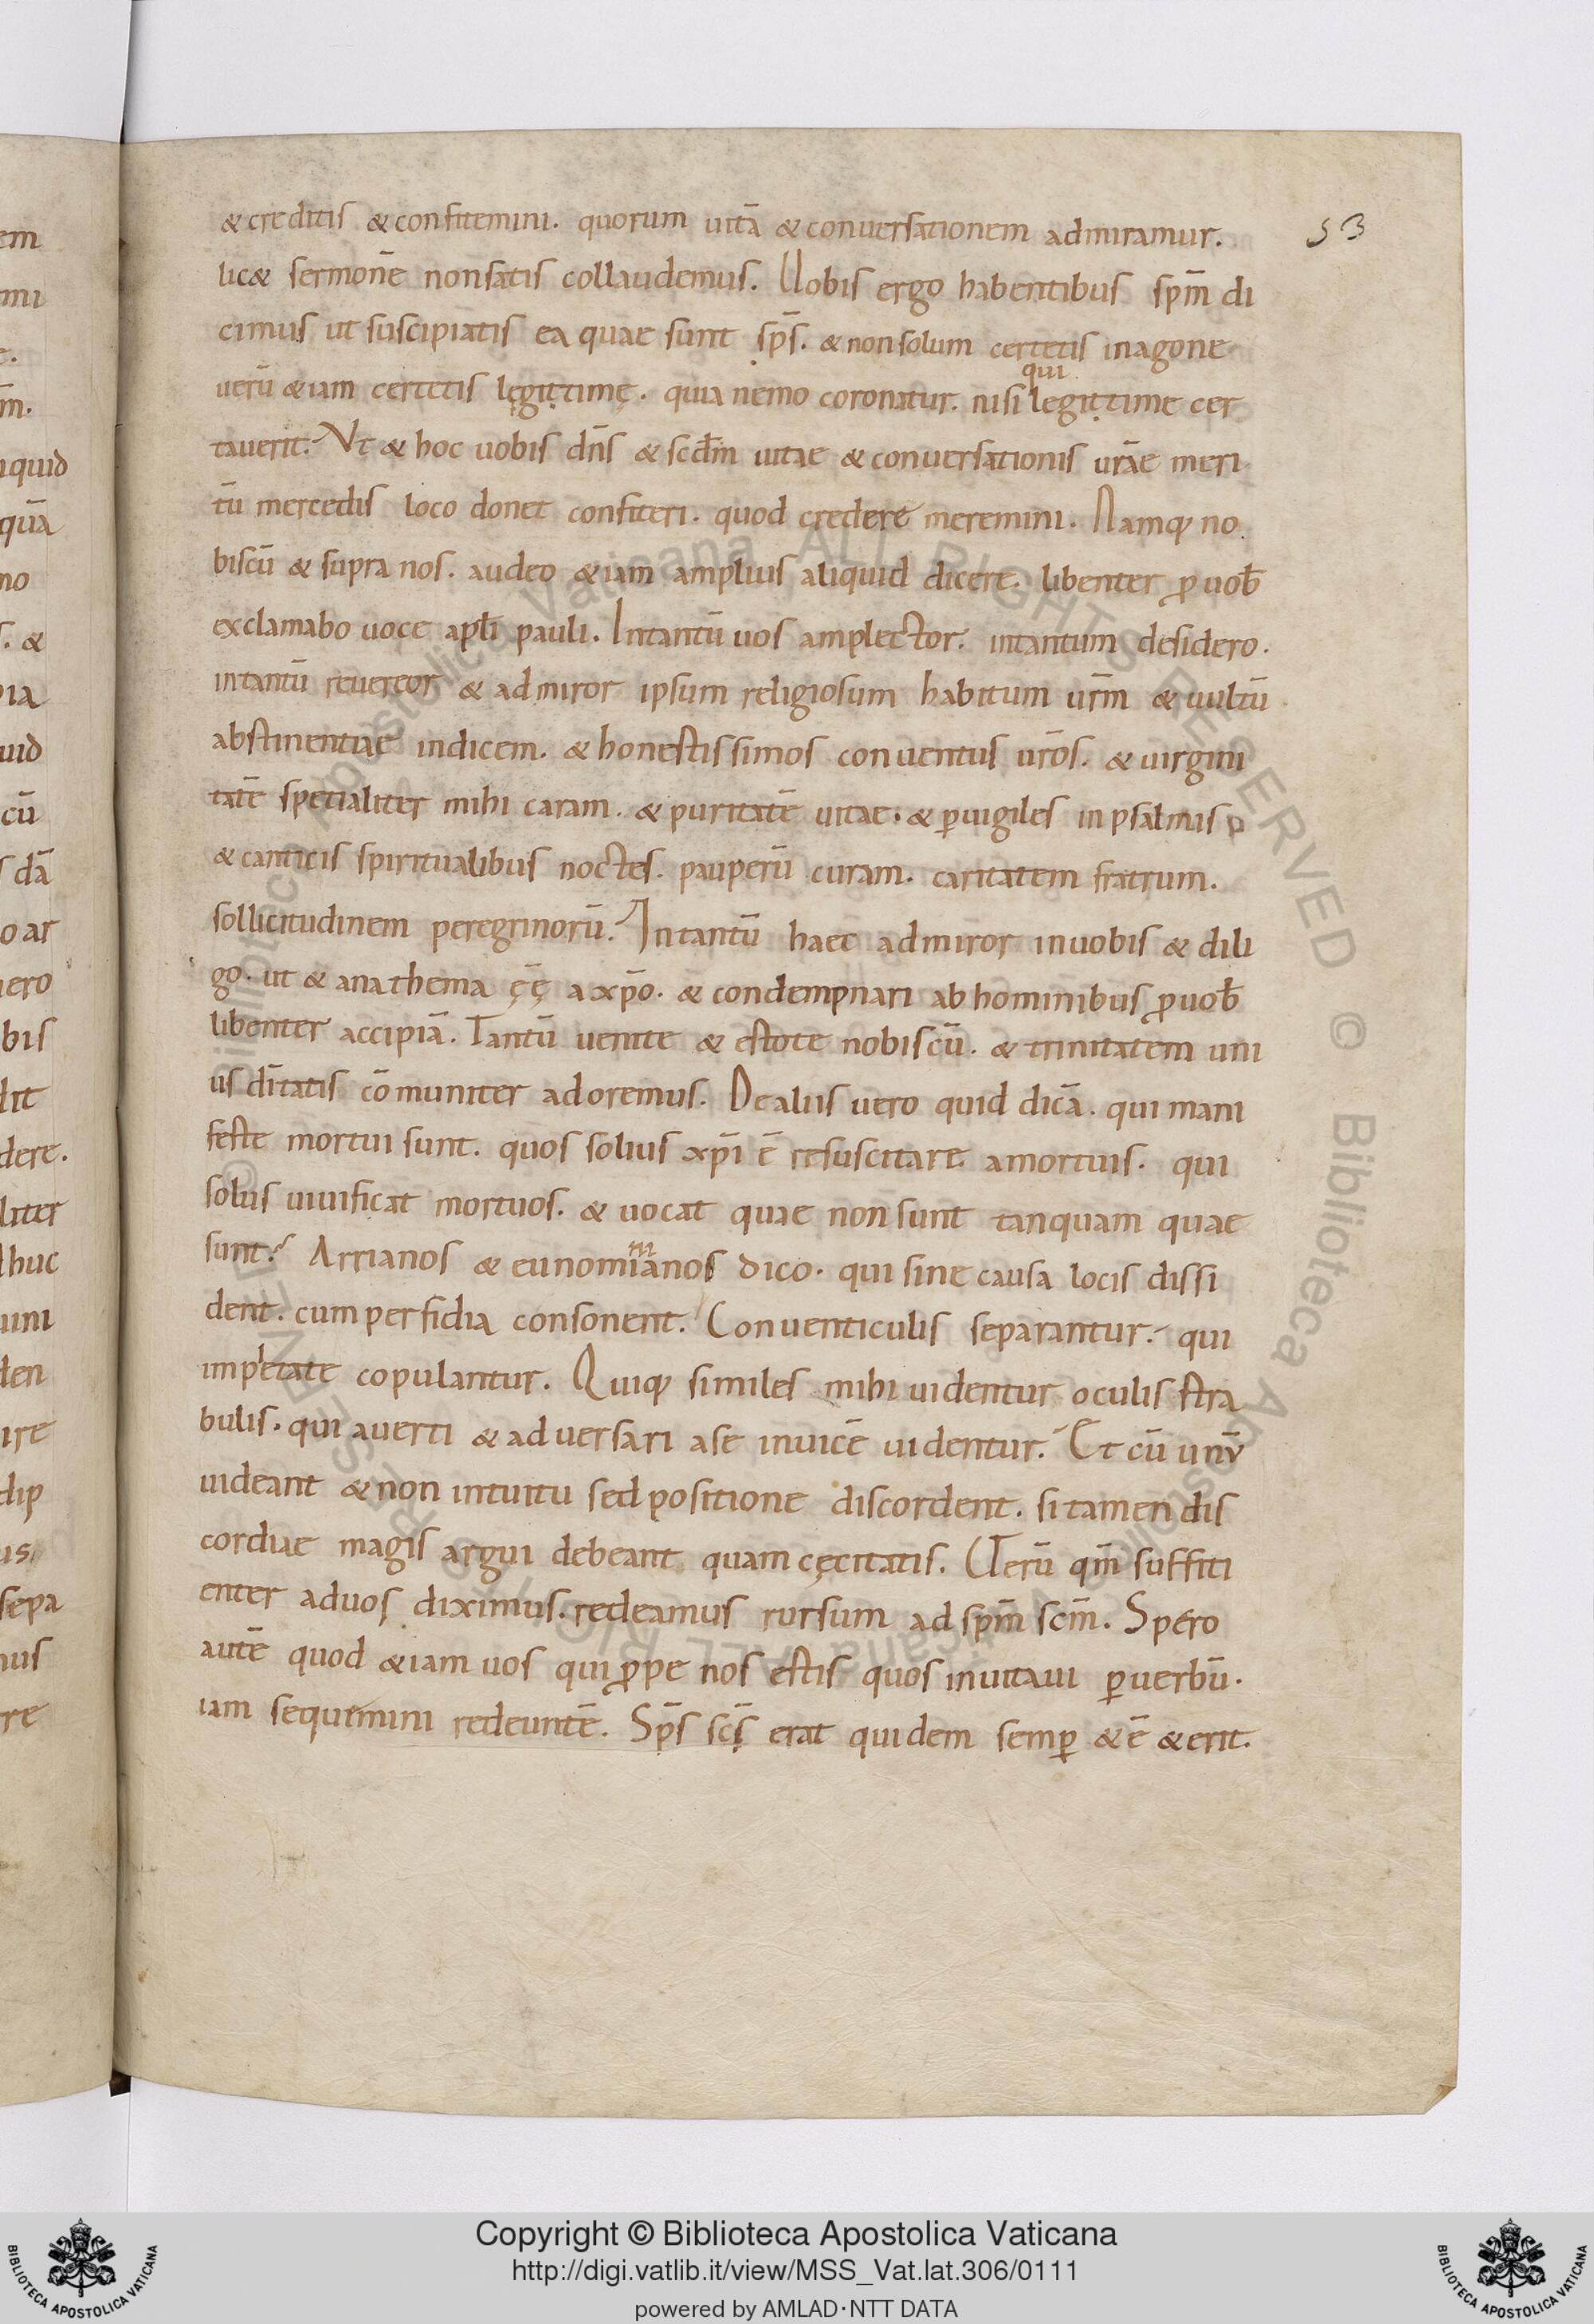 53
& creditis & confitemini. quorum uitā & conuersationem admiramur.
lic& sermonē nonsatis collaudemus. Uobis ergo habentibus sp̄m di
cimus ut suscipiatis ea quae sunt sp̄s. & nonsolum certetis inagone
uerū &iam certetis legittime. quia nemo coronatur. nisi qui legittime cer
tauerit. Ut & hoc uobis dn̄s & scd̄m uitae & conuersationis urāe meri
tū mercedis loco donet confiteri. quod credere meremini. Namq; no
biscū & supra nos. audeo &iam amplius aliquid dicere. libenter ꝓuob̄
exclamabo uoce apl̄i pauli. Intantū uos amplector. intantum desidero.
intantū reuereor & admiror ipsum religiosum habitum ur̄m & uultū
abstinentiae indicem. & honestissimos conuentus ur̄os. & uirgini
tatē spetialiter mihi caram. & puritatē uitae. & ꝑuigiles inpsalmis
& canticis spiritualibus noctes. pauperū curam. caritatem fratrum.
sollicitudinem peregrinorū. Intantū haec admiror inuobis & dili
go. ut & anathema ęę̄ axp̄o. & condempnari ab hominibus ꝓuob̄
libenter accipiā. Tantū uenite & estote nobiscū. & trinitatem uni
us dīitatis cōmuniter adoremus. De aliis uero quid dicā. qui mani
feste mortui sunt. quos solius xp̄i ē resuscitare amortuis. qui
solus uiuificat mortuos. & uocat quae nonsunt tanquam quae
sunt. Arrianos & eunomianos dico. qui sine causa locis dissi
dent. cum perfidia consonent. Conuenticulis separantur. qui
impietate copulantur. Quiq; similes mihi uidentur oculis stra
bulis. qui auerti & aduersari ase inuicē uidentur. Et cū unū
uideant & non intuitu sed positione discordent. si tamen dis
cordiae magis argui debeant quam cęcitatis. Uerū qm̄ suffiti
enter aduos diximus. redeamus rursum ad sp̄m scm̄. Spero
autē quod &iam uos qui ꝓpe nos estis quos inuitaui ꝑuerbū.
iam sequemini redeuntē. Sp̄s scs̄ erat quidem semꝑ & ē & erit.
em
mi
m.
quid
quā
no
s. &
uid
cū
dā
o ar
ero
bis
dit
dere.
liter
huc
uni
den
ire
us
sepa
re
Copyright © Biblioteca Apostolica Vaticana
http://digi.vatlib.it/view/MSS_Vat.lat.306/0111
powered by AMLAD·NTT DATA
BIBLIOTECA APOSTOLICA VATICANA
BIBLIOTECA APOSTOLICA VATICANA